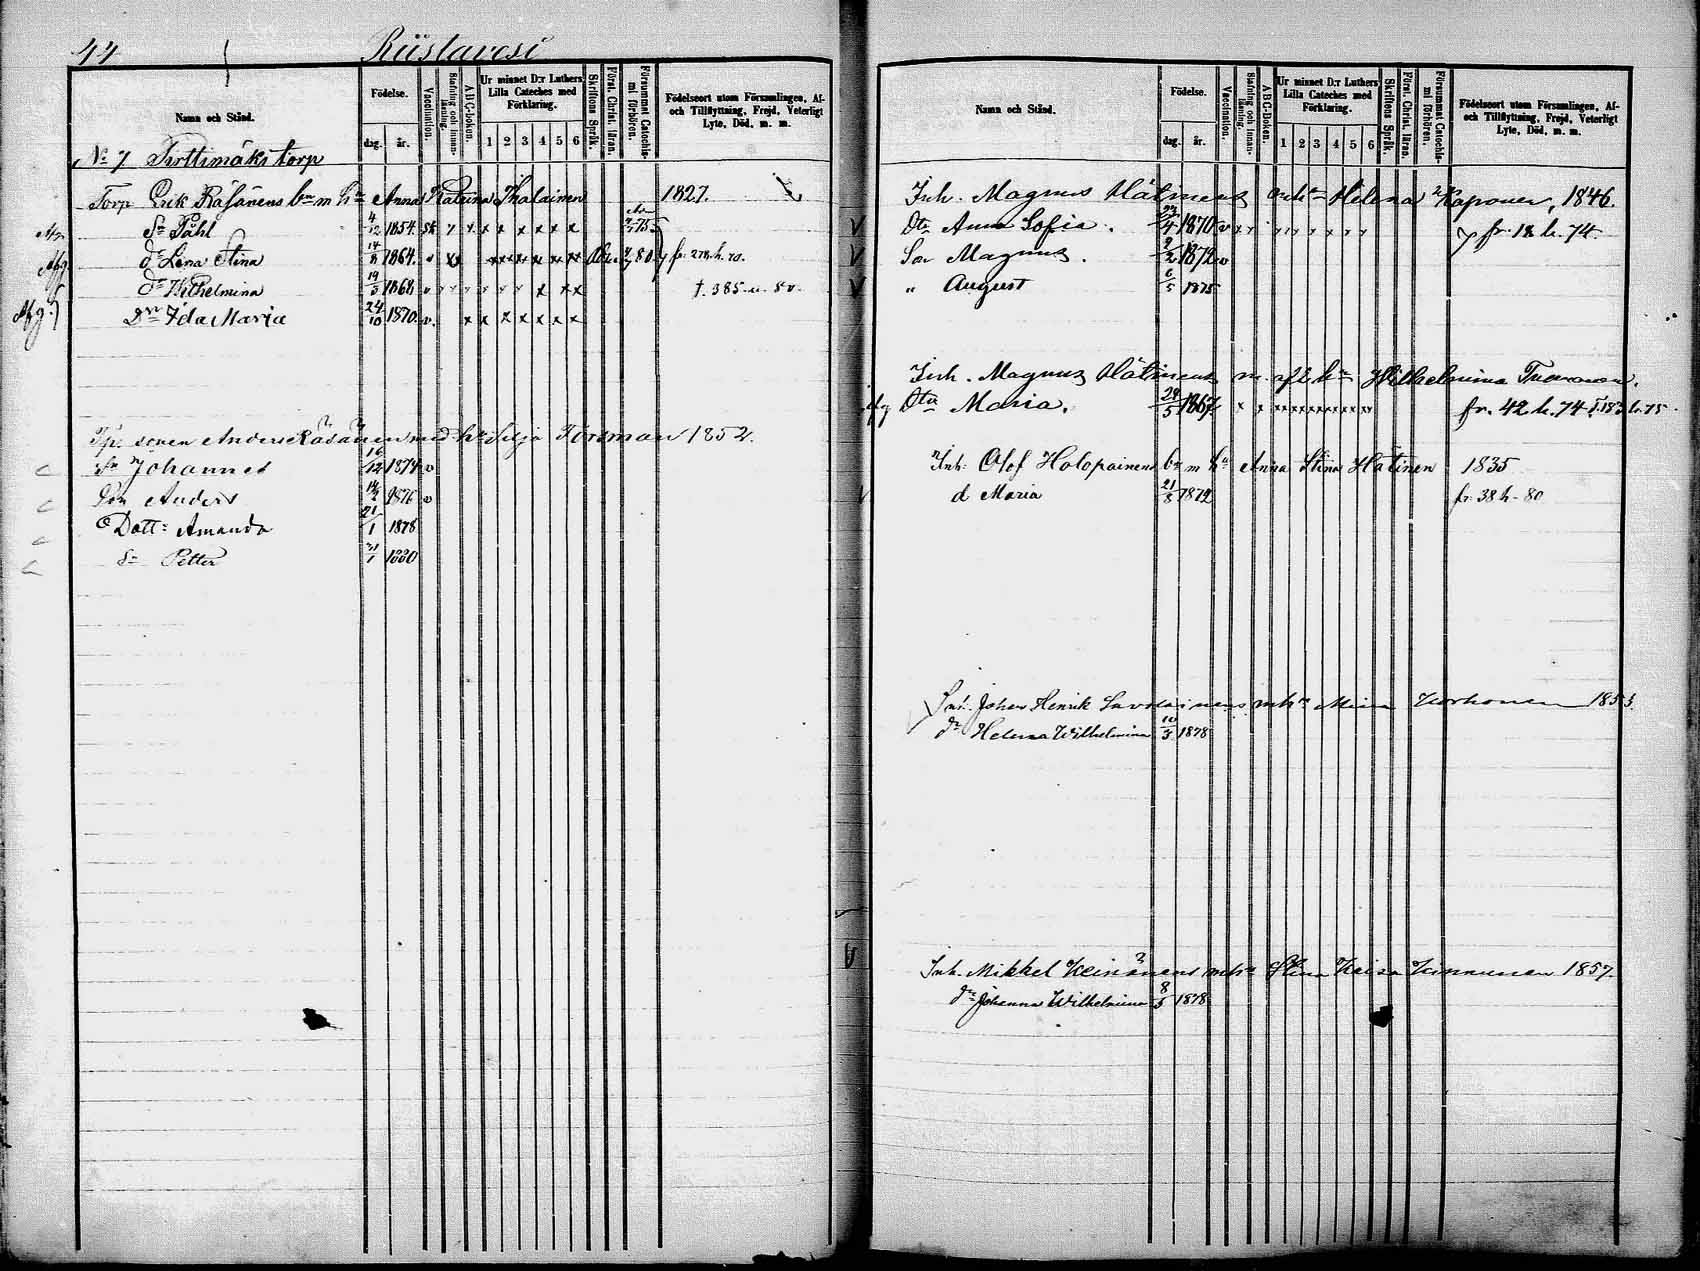 44 Riistavesi
Namn och Stånd.
Födelse.
dag. år.
Vaccination.
Stafning och innanläsning.
ABC-boken.
Ur minnet D:r Luthers Lilla Cateches med Förklaring.
1 2 3 4 5 6
Skriftens Språk.
Först. Christ. läran.
Försummat Catechismi förhören.
Födelseort utom Församlingen, Af- och Tillflyttning, Frejd, Veterligt Lyte, Död, m. m.
No 7 Pirttimäki torp
Torp. Erik Räsänens bn m hu Anna Katrina Thalainen 1827.
Sn Påhl 4/12 1854.
dr Lena Stina 14/8 1864. v fr. 278. h. 70.
dr Wilhelmina 19/3 1868 v †. 385. u. 80.
Dr Ida Maria 24/10 1870. v.
Tp. sonen Anders Räsänen med hu Silja Forsman 1852.
Sn Johannes 16/12 1874 v
Son Anders 1876 v
Dott: Amanda 21/1 1878
Sn Petter 1880
Namn och Stånd.
Födelse.
dag. år.
Vaccination.
Stafning och innanläsning.
ABC-boken.
Ur minnet D:r Luthers Lilla Cateches med Förklaring.
1 2 3 4 5 6
Skriftens Språk.
Först. Christ. läran.
Försummat Catechismi förhören.
Födelseort utom Församlingen, Af- och Tillflyttning, Frejd, Veterligt Lyte, Död, m. m.
Inh. Magnus Hätinens och hu Helena Kaponen, 1846.
Dtr Anna Sofia. 1870 v fr. 18 h. 74.
Son Magnus. 2/2 1872 v
" August 6/5 1875
Inh. Magnus Hätinens m. afl. hu Wilhelmina Tuovonen.
Dtr Maria. 28/5 1867 fr. 42 h. 74
Inh: Olof Holopainens bn m hu Anna Stina Hätinen 1835
d Maria 21/8 1872 fr. 38 h - 80
Inh. Johan Henrik Savolainens m hu Mina Korhonen 1853.
dr Helena Wilhelmina 10/3 1878
Inh. Mikkel Keinänens m hu Stina Kaisa Kinnunen 1857.
dr Johanna Wilhelmina 8/5 1878